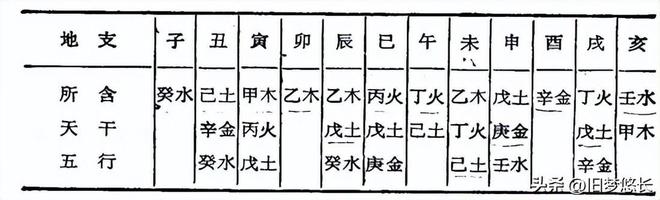 地支 子 丑 寅 卯 辰 巳 午 未 申 酉 戌 亥
所含 癸水 己土 甲木 乙木 乙木 丙火 丁火 乙木 戊土 辛金 丁火 壬水
天干 辛金 丙火 戊土 戊土 己土 丁火 庚金 戊土 甲木
五行 癸水 戊土 癸水 庚金 己土 壬水 辛金
头条 @旧梦悠长